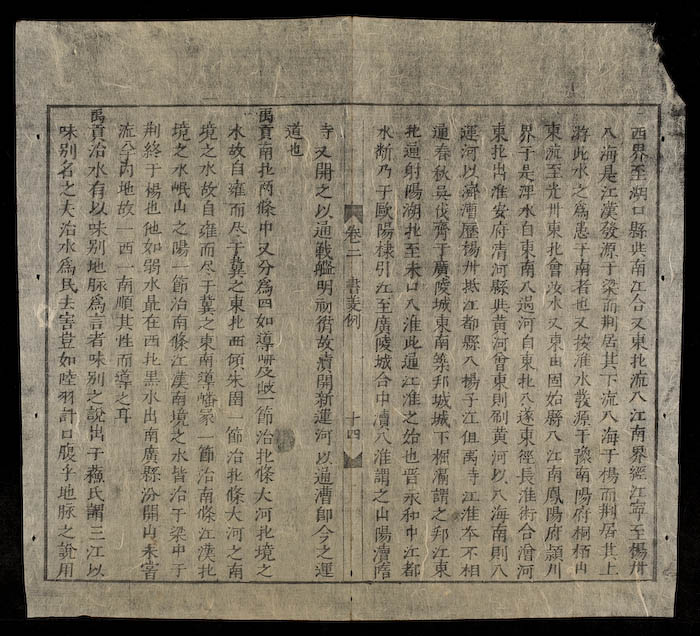 西界至湖口縣與南江合又東北流入江南界經江寧至楊州
入海是江漢發源于梁而荆居其下流入海于楊而荆居其上
將此水之爲患于南者也又按淮水發源于豫南陽府桐栢山
東流至光州東北會汝水又東由固始縣入江南鳳陽府頴川
界于是渒水自東南入過河自東北入遂東徑長淮衛合澮河
東北出淮安府清河縣與黄河會東則刷黄河以入海南則入
運河以濟漕歷楊州抵江都縣入楊子江但禹時江淮本不相
通春秋吳伐齊于廣陵城東南築邗城城下掘溝謂之邗江東
北通射陽湖北至末口入淮此通江淮之始也晋永和中江都
水断乃于歐陽棣引江至廣陵城合中瀆入淮謂之山陽瀆隋
卷二 書菱例 十四
時又開之以通戰艦明初衛故瀆開新運河以通漕即今之運
道也
禹貢南北两條中又分爲四如導岍及岐一節治北條大河北境之
水故自雍而尽于冀之東北西傾朱圉一節治北條大河之南
境之水故自雍而尽于冀之東南導嶓冢一節治南條江漢北
境之水岷山之陽一節治南條江漢南境之水皆治于梁中于
荆終于楊也他如弱水最在西北黑水出南廣縣汾開山未害
流今内地故一西一南順其性而導之耳
禹貢治水有以味别地脉爲言者味别之説出于蘓氏謂三江以
味别名之夫治水爲民去害豈如陸羽計口腹乎地脉之説用